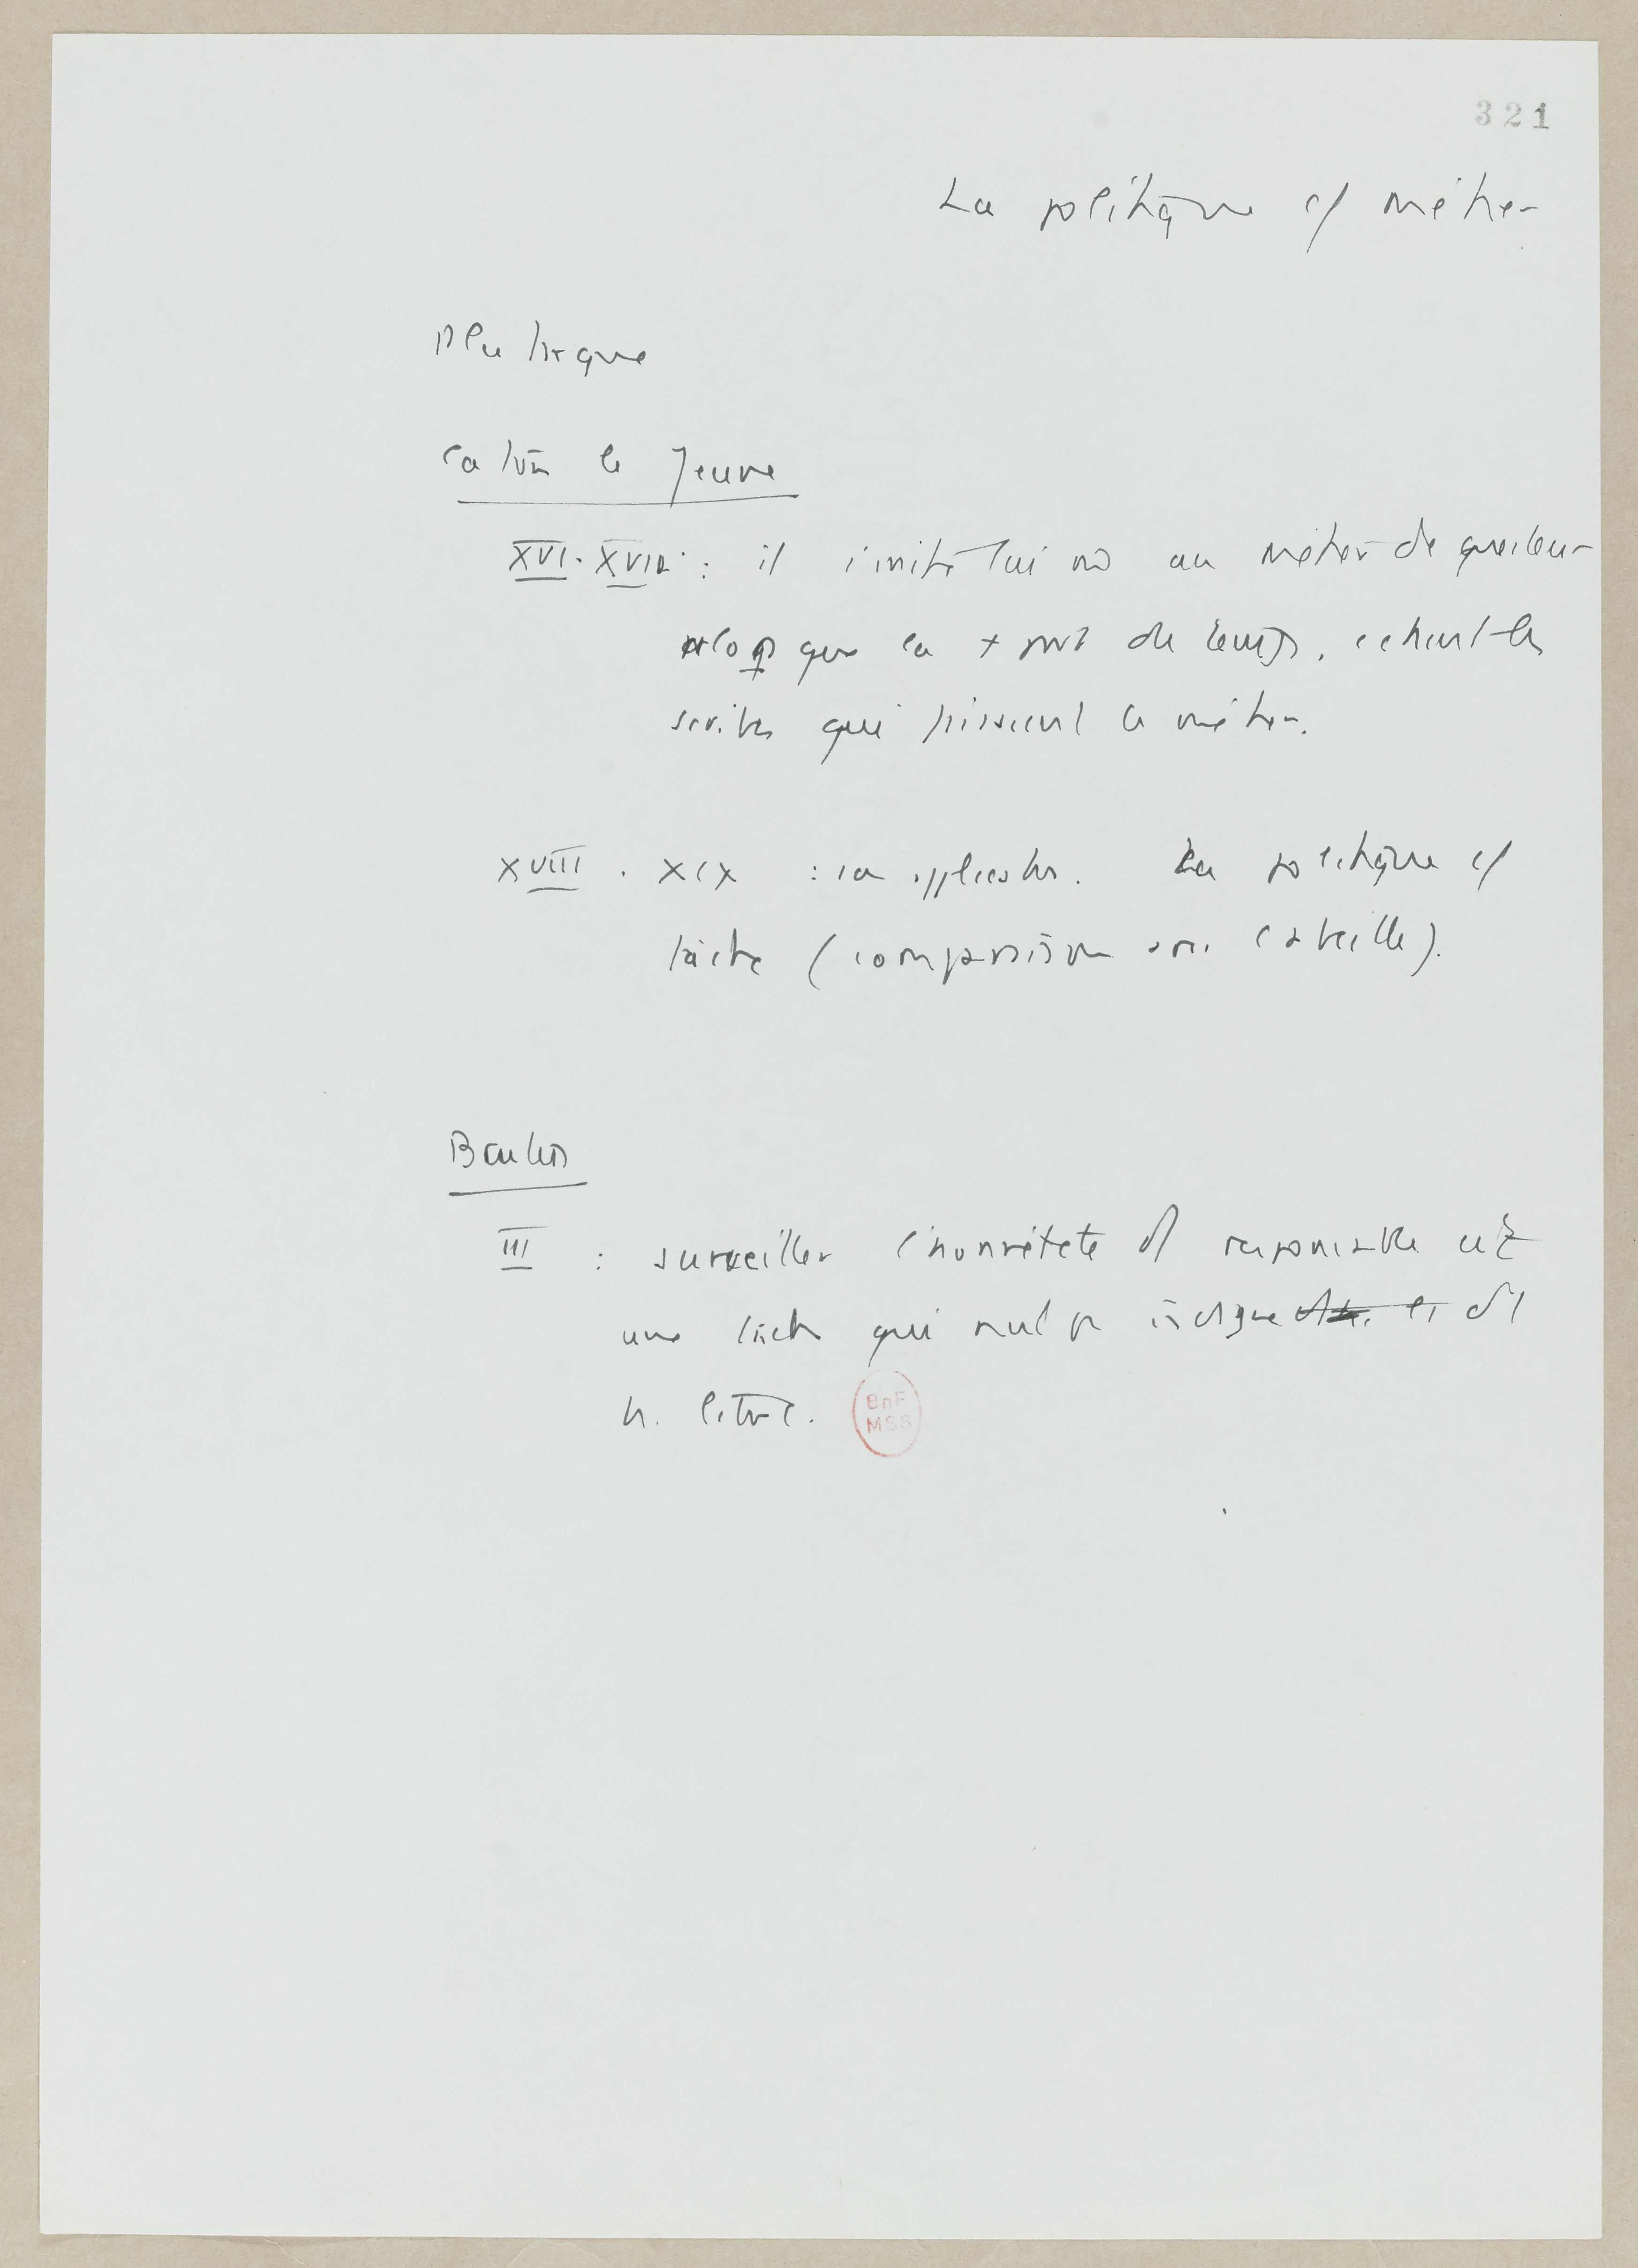 321
La politique c/ métier
Plutarque
Caton le Jeune
XVI. XVII : il s'initie lui m̂ au métier de questeur
alors que la + part du temps, c'étaient les
scribes qui faisaient le métier.
XVIII . XIX : son application. La politique c/
tâche (comparaison avec l'abeille).
Brutus
III : surveiller l'honnêteté d'1 responsable
une tâche qui peut être indigne d'1
h. libre.
BnF
MSS